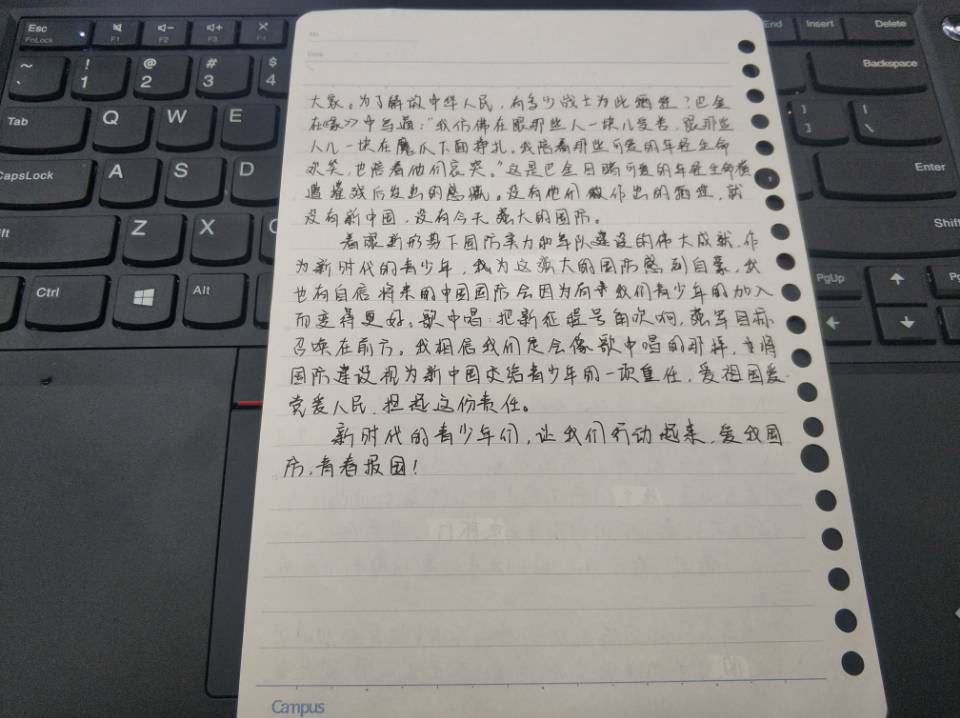 Esc
FnLock
F1
F2
F3
F4
End
Insert
Delete
~
`
!
1
@
2
#
3
$
4
Backspace
Tab
Q
W
E
}
]
|
\
CapsLock
A
S
D
Enter
Z
X
Shift
Ctrl
Alt
PgUp
PgDn
No.
Date
大家。为了解放中华人民,有多少战士为此牺牲?巴金
在《家》中写道:“我仿佛在跟那些人一块儿受苦,跟那些
人儿一块在魔爪下面挣扎。我陪着那些可爱的年轻生命
欢笑,也陪着他们哀哭。”这是巴金目睹可爱的年轻生命横
遭摧残后发出的感慨。没有他们做作出的牺牲,就
没有新中国,没有今天强大的国防。
看感新形势下国防实力和军队建设的伟大成就,作
为新时代的青少年,我为这强大的国防感到自豪,我
也有自信将来的中国国防会因为有我们青少年的加入
而变得更好。歌中唱:把新征程号角吹响,强军目标
召唤在前方。我相信我们定会像歌中唱的那样,主将
国防建设视为新中国交给青少年的一项重任,爱祖国爱
党爱人民,担起这份责任。
新时代的青少年们,让我们行动起来,爱我国
防,青春报国!
Campus